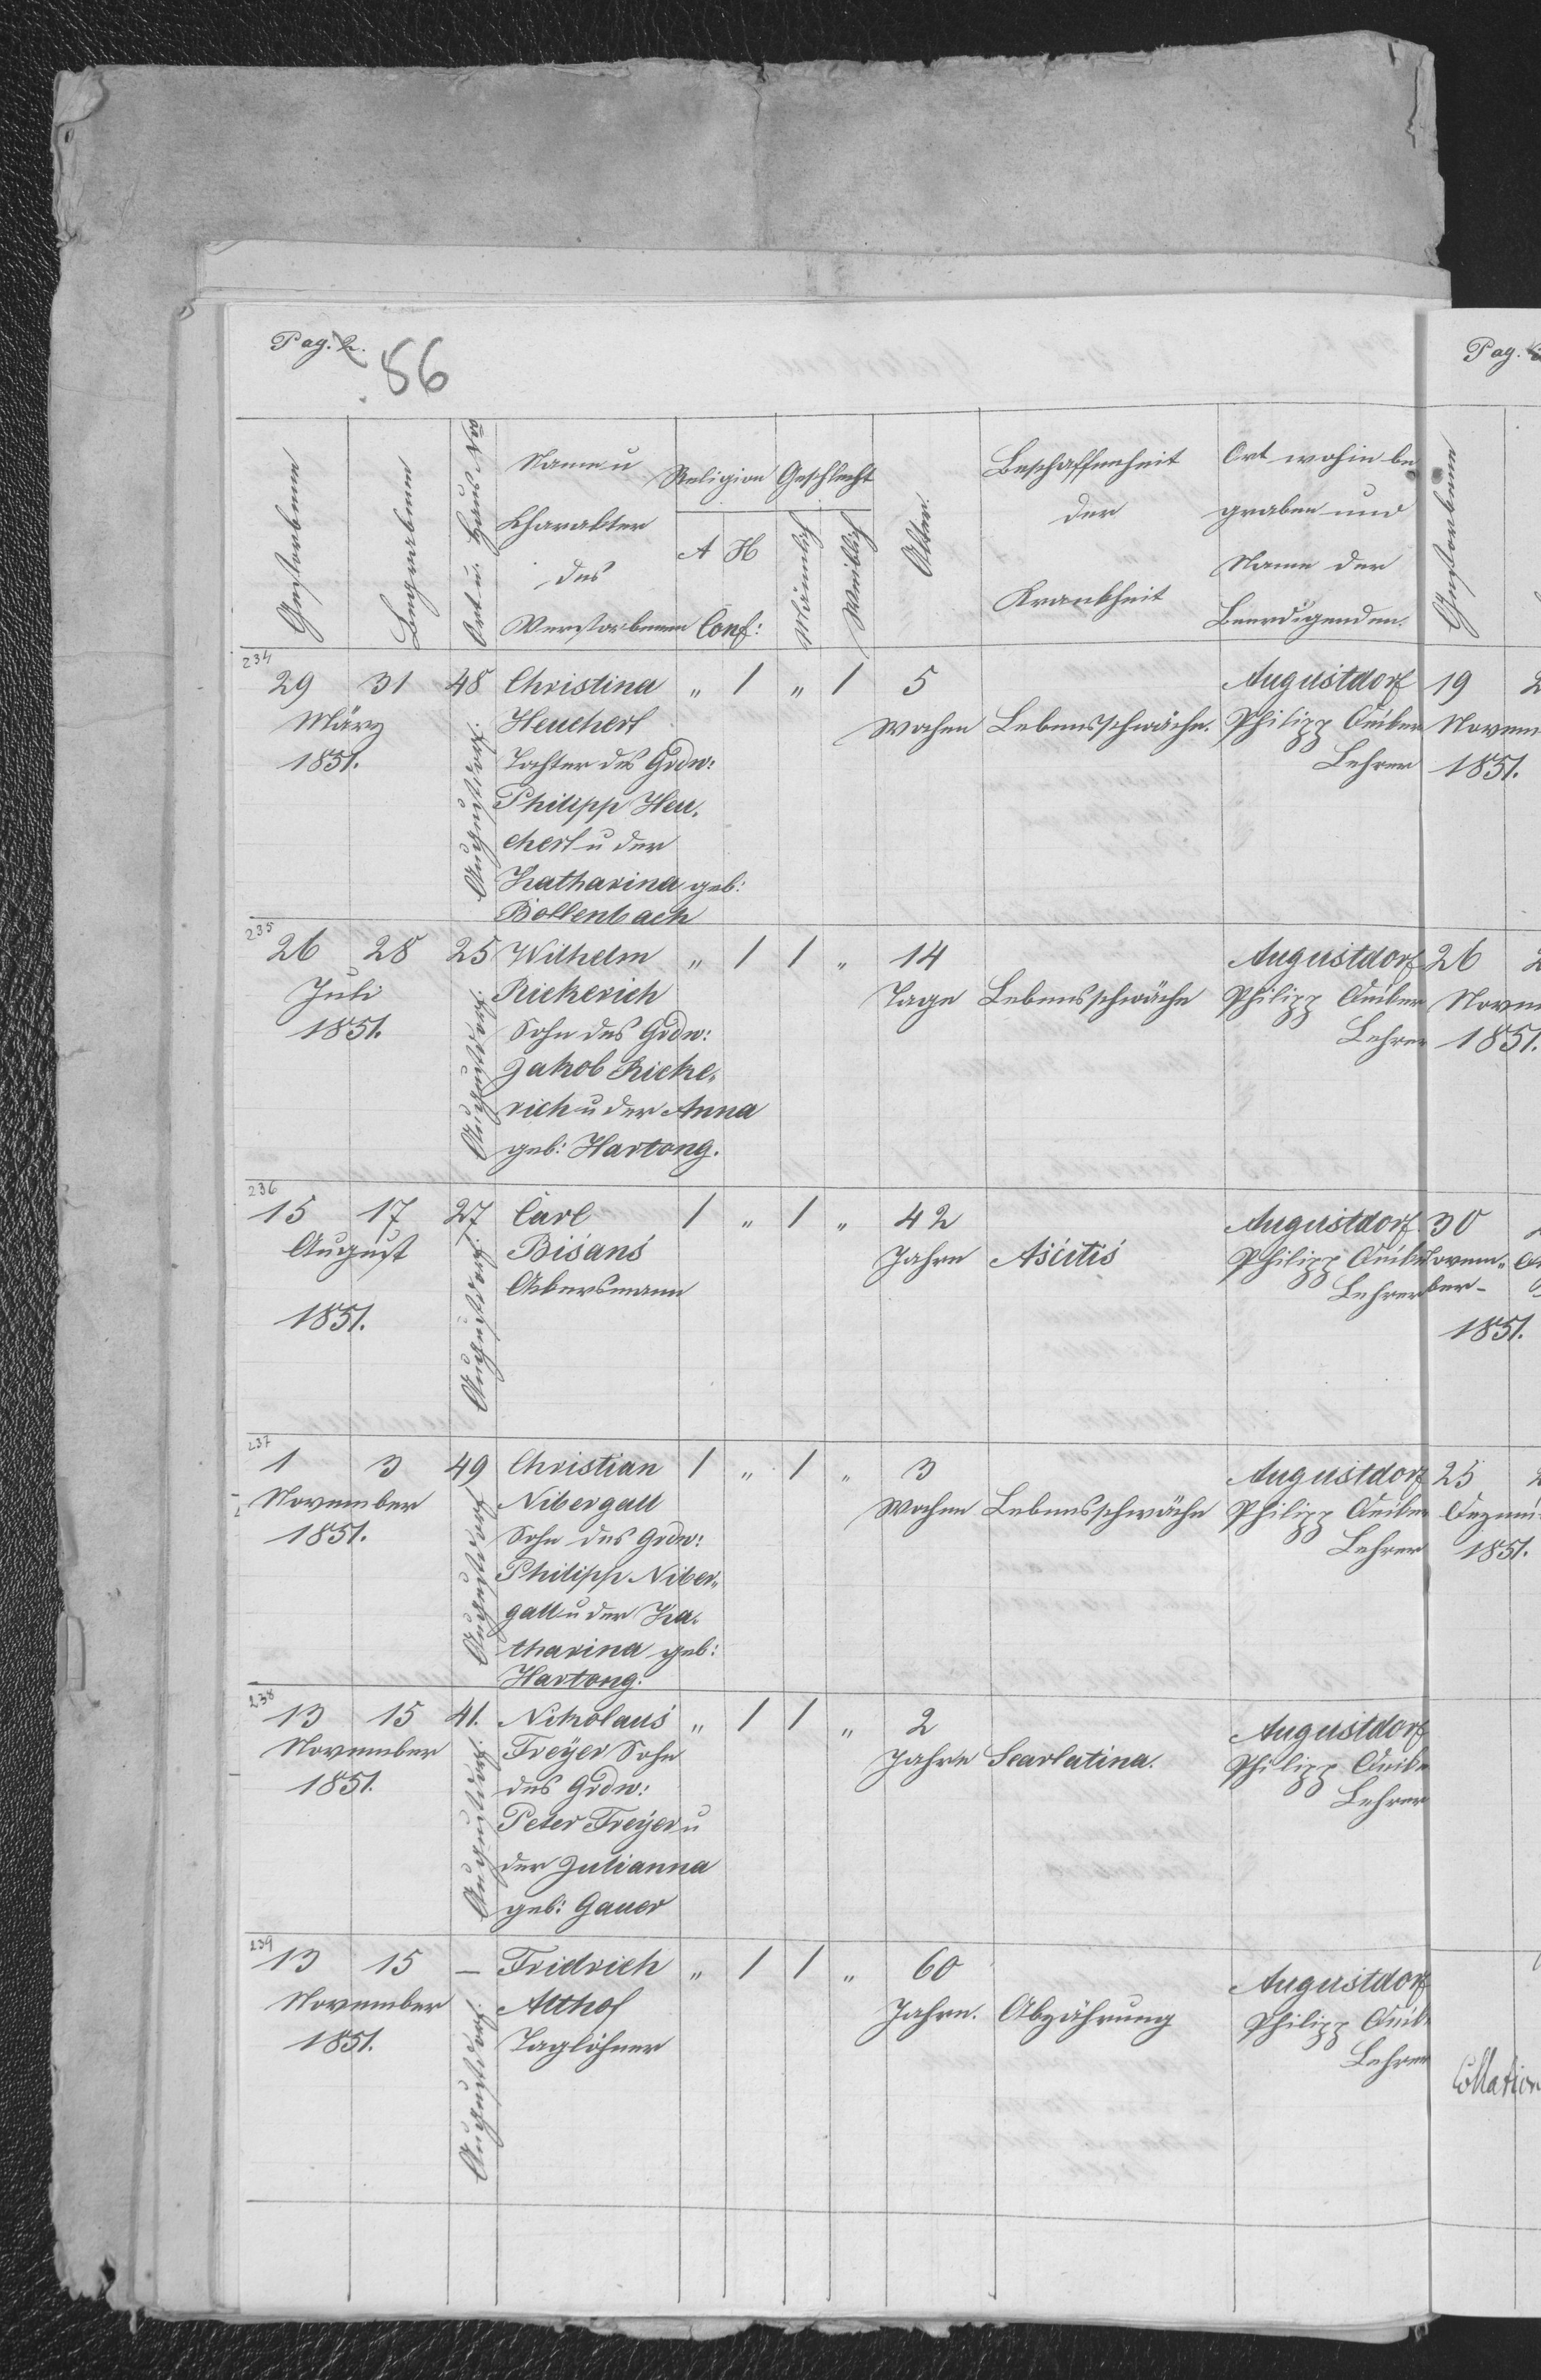 Pag. 2.
86
Gestorbenen
Begrabenen
Ort u. Haus Nro
Name u
Charakter
des
Verstorbenen
Religion
A H
Conf:
Geschlecht
Männlich
Weiblich
Alter.
Beschaffenheit
der
Krankheit
Ort wohin be
graben und
Name der
Beerdigenden.
234
29 31 48 Christina " 1 " 1 5 Augustdorf
März Heuchert Wochen Lebensschwäche. Philipp
1851. Tochter des Grdw: Lehrer
Augustdorf.
Philipp Heu,
chert u der
Katharina geb:
Bollenbach
235
26 28 25 Wilhelm " 1 1 " 14 Augustdorf
Juli Rickerich Tage Lebensschwäche Philipp
1851. Sohn des Grdw: Lehrer
Augustdorf.
Jakob Ricke,
rich u der Anna
geb: Hartong.
236
15 17 27 Carl 1 " 1 " 42 Augustdorf.
August Bisans Jahre Ascitis Philipp
Augustdorf.
Ackersmann Lehrer
1851.
237
1 3 49 Christian 1 " 1 " 3 Augustdorf
November Nibergall Wochen Lebensschwäche Philipp
1851. Sohn des Grdw: Lehrer
Augustdorf
Philipp Niber,,
gall u der Ka,
tharina geb:
Hartong.
238
13 15 41. Nikolaus " 1 1 " 2 Augustdorf
November Treÿer Sohn Jahre Scarlatina. Philipp
1851. des Grdw: Lehrer
Augustdorf.
Peter Treÿer u
der Julianna
geb: Gauer
239
13 15 — Fridrich " 1 1 " 60 Augustdorf
November Althof Jahre. Abzährung Philipp
1851. Taglöhner Lehrer
Augustdorf.
Pag.
Gestorbenen
19
Novem
1851.
26
Novem
1851.
30
Novem,,
ber-
1851.
25
Dezem
1851.
Collation